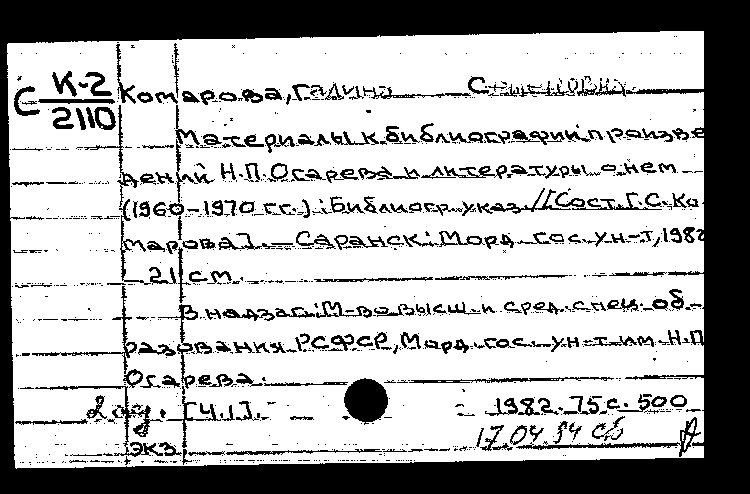 С К-2 Комарова, Галина Семеновна
2110
Материалы к библиографии произве
дений Н.П.Огарева и литературы о нем
(1960-1970 гг.): Библиогр. указ. / [Сост. Г.С. Ко
марова]. — Саранск: Морд. гос. ун-т, 1982
21 см.
В надзаг.: М-во высш. и сред. спец. об-
разования РСФСР, Морд. гос. ун-т им. Н.П
Огарева.
[Ч.1]. 1982. 75 с. 500
экз 17.04.84